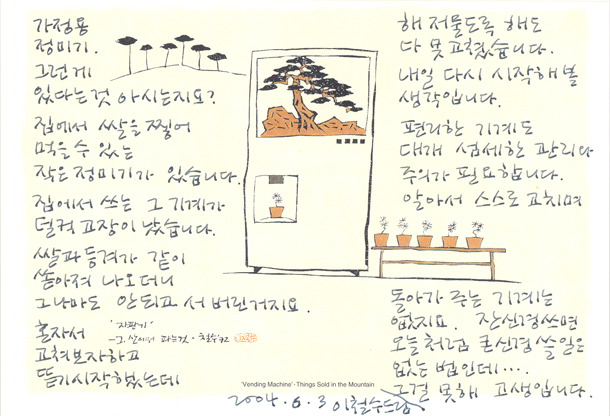 가정용
정미기.
그런게
있다는것 아시는지요?
집에서 쌀을 찧어
먹을 수 있는
작은 정미기가 있습니다.
집에서 쓰는 그 기계가
덜컥 고장이 났습니다.
쌀과 등겨가 같이
쏟아져 나오더니
그나마도 안되고 서 버린거지요.
혼자서
고쳐보자하고
뜯기시작했는데
'자판기'
파는것 · 철수 '92
'Vending Machine' - Things Sold in the Mountain
해 저물도록 해도
다 못 고쳤습니다.
내일 다시 시작해 볼
생각입니다.
편리한 기계도
대개 섬세한 관리와
주의가 필요합니다.
알아서 스스로 고치며
돌아가 주는 기계는
없지요. 잔신경쓰면
오늘처럼 큰신경 쓸 일은
없는 법인데····
그걸 못해 고생입니다.
2004.6.3 이철수드림